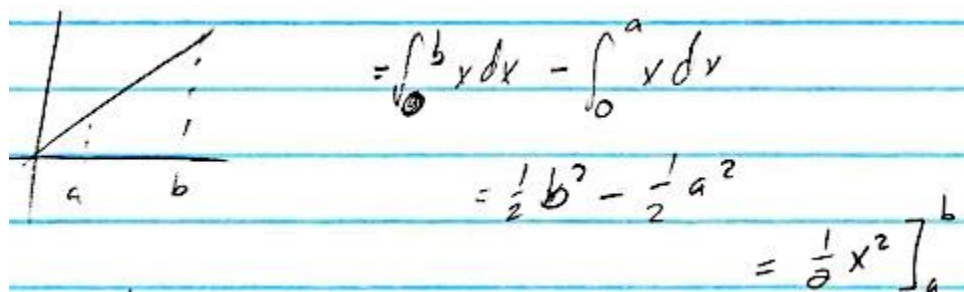 = ∫₀ᵇ x dx − ∫₀ᵃ x dx
a b
= ½ b² − ½ a²
= ½ x² ]ₐᵇ